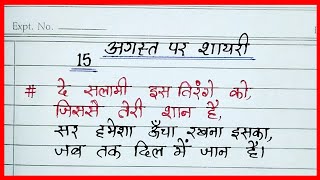 Expt. No.
अगस्त पर शायरी
15
# दे सलामी इस तिरंगे को,
जिससे तेरी शान है,
सर हमेशा ऊँचा रखना इसका,
जब तक दिल में जान है।